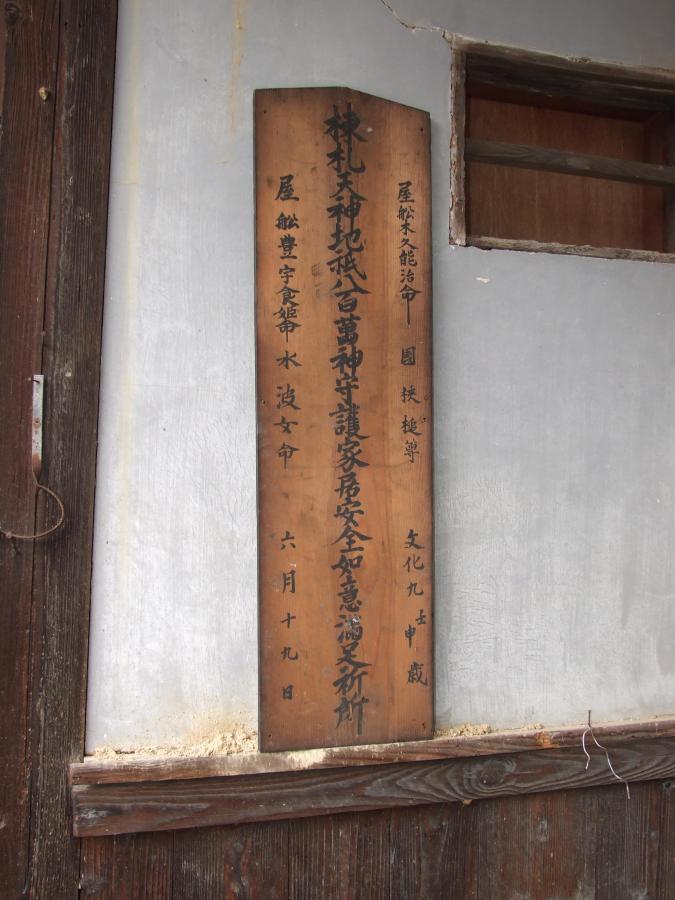 屋舩木久能治命 國挾槌尊 文化九壬申歳
棟札天神地祇八百萬神守護家居安全如意満足祈所
屋舩豊宇食姫命 水波女命 六月十九日